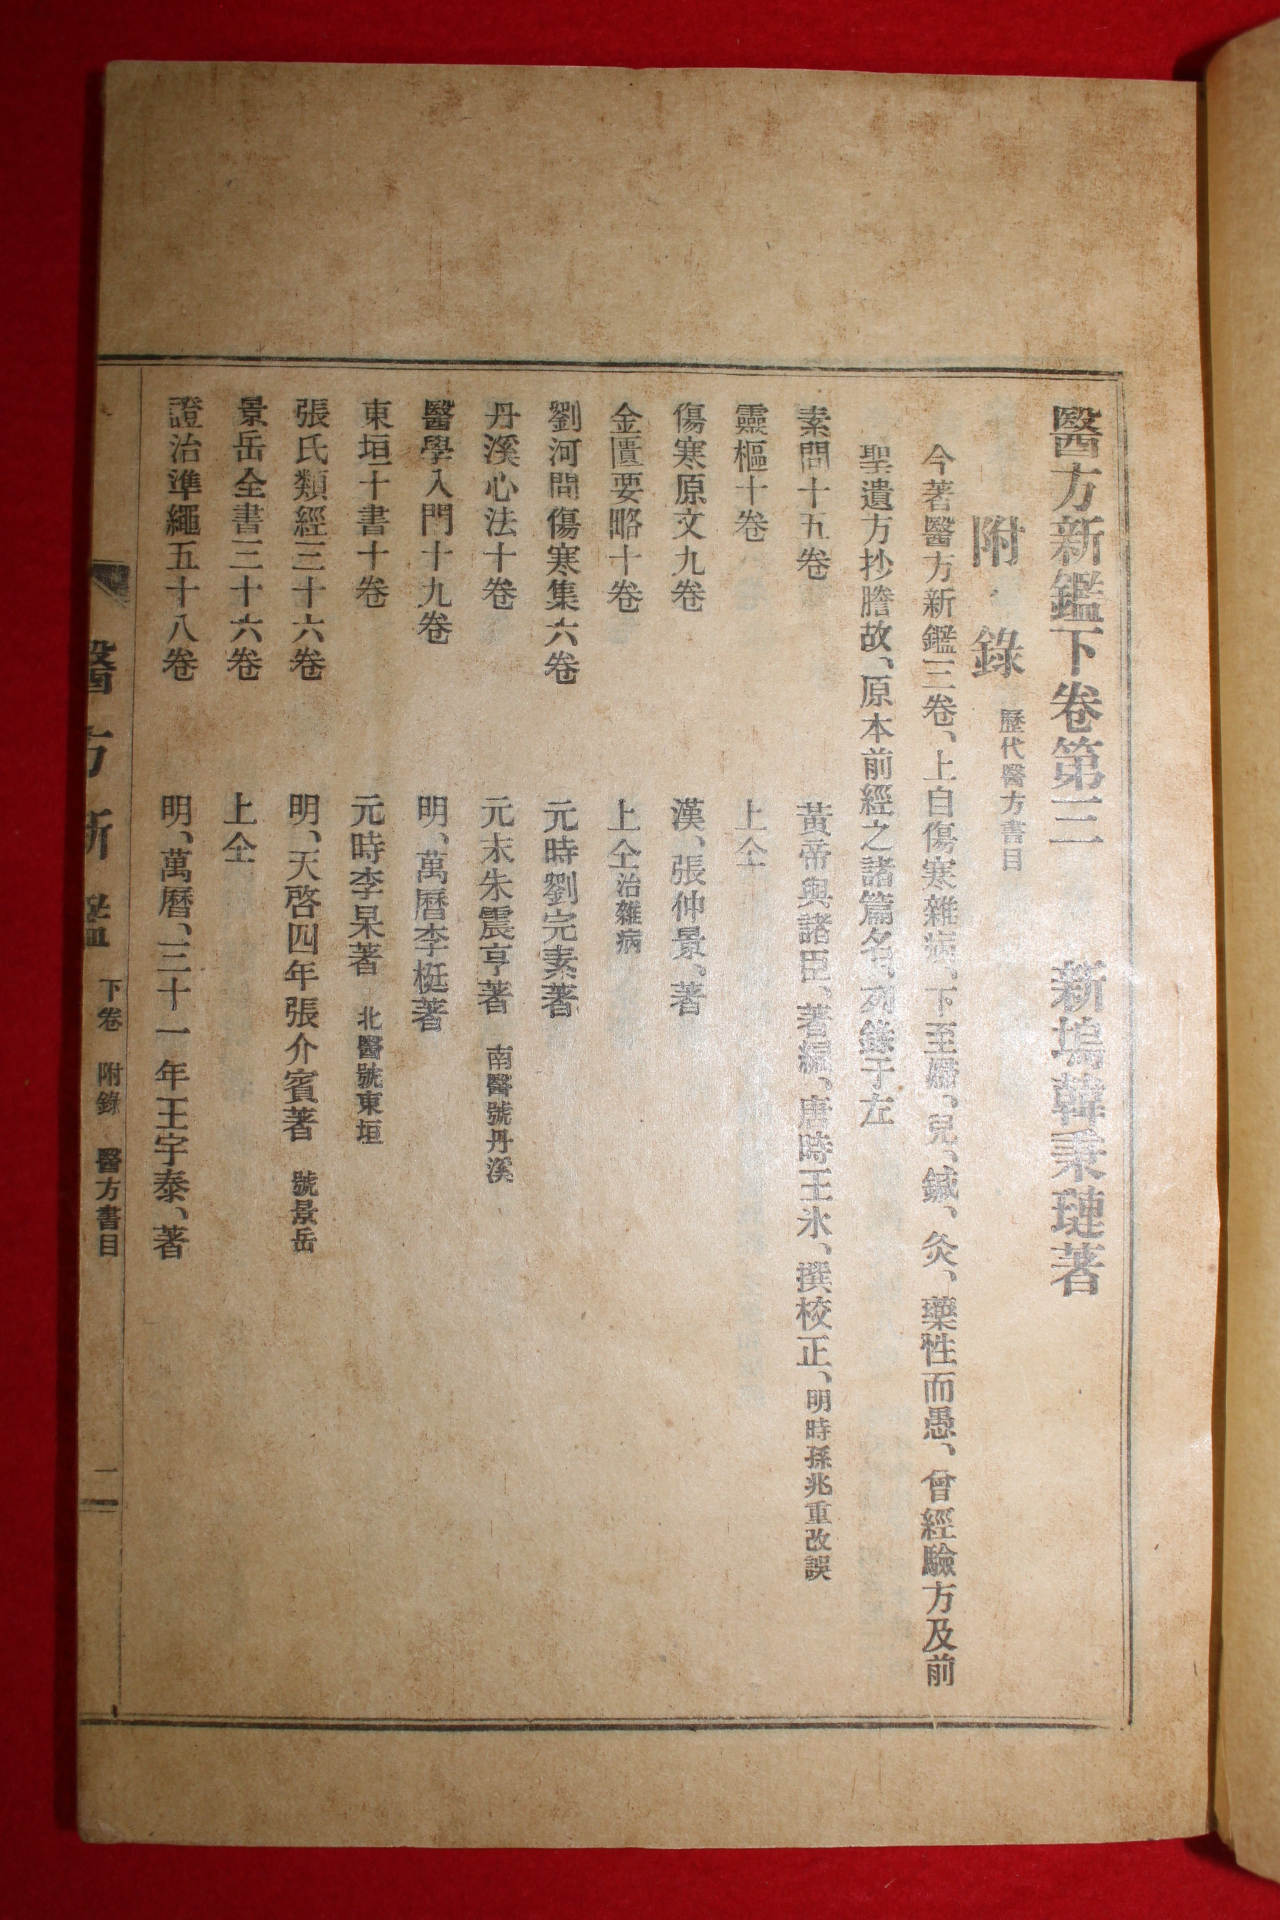 醫方新鑑下卷第三　新塢韓秉璉著
附錄 歷代醫方書目
今著醫方新鑑三卷、上自傷寒雜病、下至婦、兒、鍼、灸、藥性而愚、曾經驗方及前
聖遺方抄謄故、原本前經之諸篇名、列錄于左
素問十五卷　黃帝與諸臣、著編、唐時王氷、撰校正、明時孫兆重改誤
靈樞十卷　上仝
傷寒原文九卷　漢、張仲景、著
金匱要略十卷　上仝治雜病
劉河間傷寒集六卷　元時劉完素著
丹溪心法十卷　元末朱震亨著　南醫號丹溪
醫學入門十九卷　明、萬曆李梴著
東垣十書十卷　元時李杲著　北醫號東垣
張氏類經三十六卷　明、天啓四年張介賓著　號景岳
景岳全書三十六卷　上仝
證治準繩五十八卷　明、萬曆、三十一年王宇泰、著
醫方新鑑　下卷　附錄　醫方書目　一